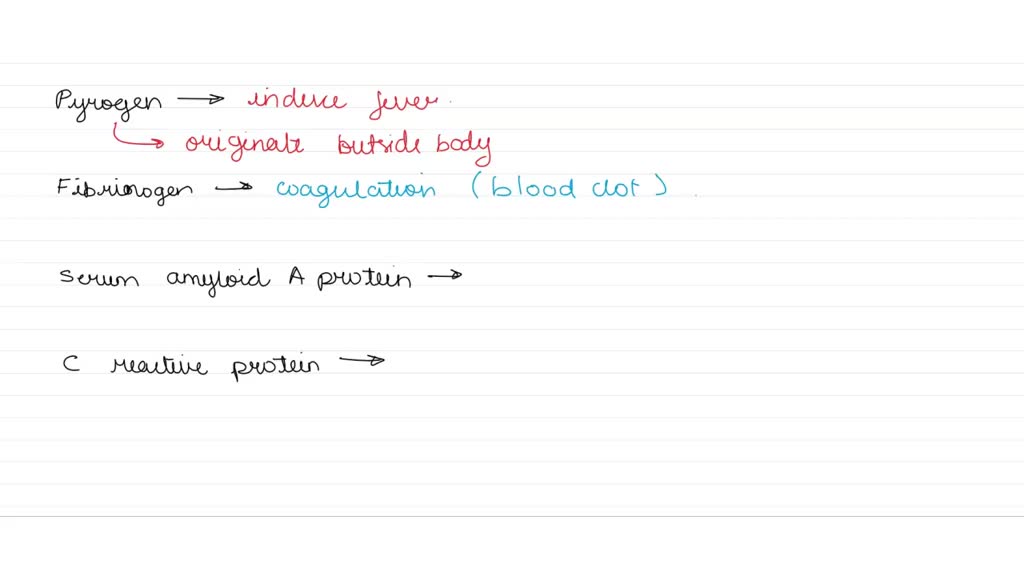 Pyrogen → induce fever.
↳ originate outside body
Fibrinogen → coagulation (blood clot).
Serum amyloid A protein →
C reactive protein →